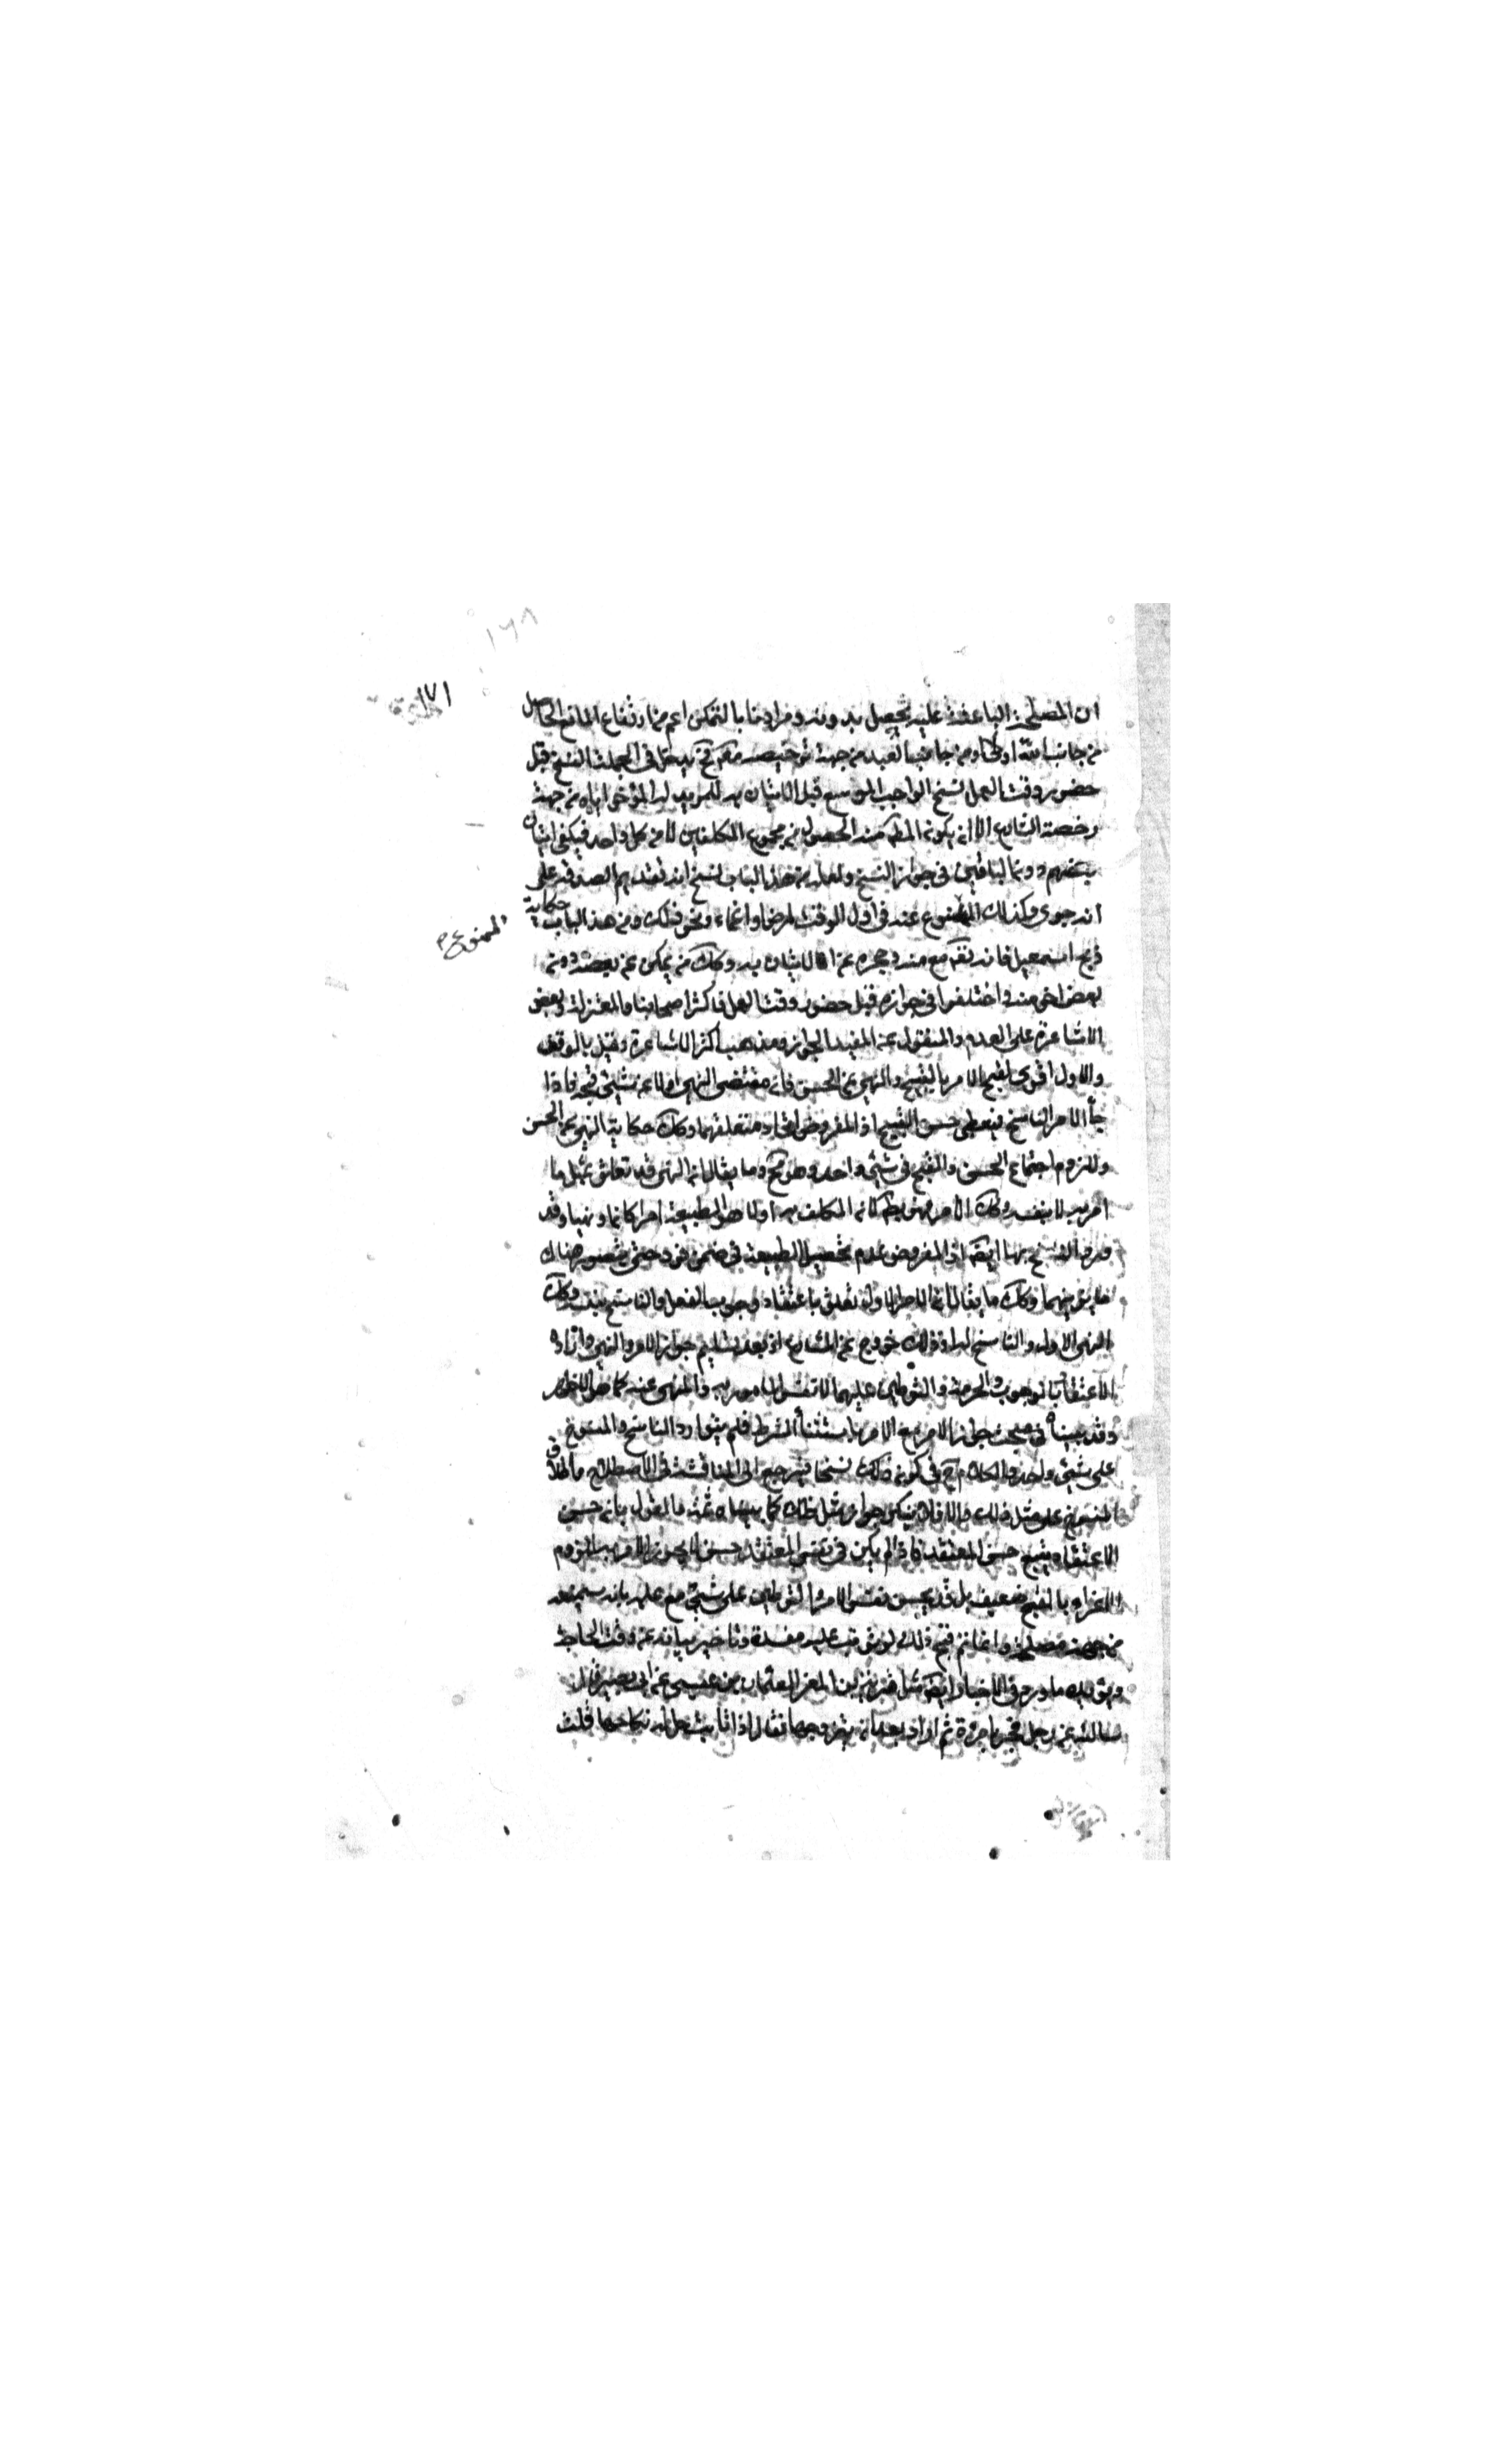 ١٦٨
١٧١
ان المصلحة الباعثة عليه تحصل بدونه ومرادنا بالتمكن اعم من ارتفاع المانع الحاصل
من جانب الله او من جانب العبد من جهة ترخيصه في الجملة النسخ قبل
حضور وقت العمل نسخ الواجب الموسع قبل الاتيان به للمريد المؤخر اياه من جهة
رخصة الشارع الا ان يكون المط منه الحصول من مجموع المكلفين لا من كل واحد فيكفي اتيان
بعضهم دون الباقين في جواز النسخ ولعل من هذا الباب نسخ تقديم الصدقة على
النجوى وكذلك الممنوع عنه في اول الوقت لمرض او اغماء ونحو ذلك ومن هذا الباب حكاية
الممنوع م
ذبح اسمعيل فانه مع منعه وعجزه عن الاتيان به وكك من يمكن عن بعضه دون
بعض اخر منه واختلفوا في جوازه قبل حضور وقت العمل فاكثر اصحابنا والمعتزلة وبعض
الاشاعرة على العدم والمنقول عن المفيد الجواز ومذهب اكثر الاشاعرة وقيل بالوقف
والاول اقوى لقبح الامر بالقبيح والنهي عن الحسن فان مقتضى النهي اولا عن شيء قبحه فاذا
جاء الامر الناسخ فيعطي حسن القبيح اذ المفروض اتحاد متعلقهما وكك حكاية النهي عن الحسن
وللزوم اجتماع الحسن والقبح في شيء واحد وهو مح وما يقال ان النهي قد تعلق بمثل ما
امر به لا بنفسه وكك الامر فهو بط لان المكلف به اولا هو الطبيعة امرا كان او نهيا وقد
ورد النسخ بها ايضا اذ المفروض عدم تحصيل الطبيعة في ضمن فرد حتى يتصور هناك
تغاير بينهما وكك ما يقال ان الامر الاول تعلق باعتقاد وجوب الفعل والناسخ بنفسه وكك
النهي الاول والناسخ له اذ ذلك خروج عن المتنازع اذ بعد تسليم جواز الامر والنهي وارادة
الاعتقاد بالوجوب والحرمة والتوطين عليهما لا نفس المامور به والمنهي عنه كما هو الظاهر
وقد بيناه في مبحث جواز الامر مع العلم بانتفاء الشرط فلم يتوارد الناسخ والمنسوخ
على شيء واحد والكلام ح في كون ذلك نسخا فيرجع الى المناقشة في الاصطلاح واطلاق
النسخ على مثل ذلك والا فلا ينكر جواز مثل ذلك كما بيناه ثمة والقول بان حسن
الاعتقاد يتبع حسن المعتقد فاذا لم يكن في نفس المعتقد حسن لا يجوز الامر به للزوم
الاغراء بالقبيح ضعيف بل قد يحسن نفس الامر والتوطين على شيء مع علمه بانه سيمنعه
من جهة مصلحة وانما تم قبح ذلك لو ترتب عليه مفسدة وتاخير بيانه عن وقت الحاجة
ويؤيده ما ورد في الاخبار ايضا مثل عثمان بن عيسى عن ابي بصير قال
سالته عن رجل فجر بامراة ثم اراد بعد ان يتزوجها فقال اذا تابت حل له نكاحها قلت